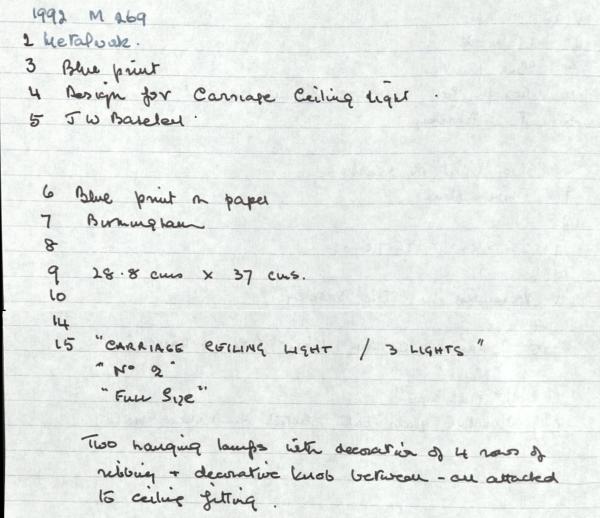 1992 M 269
2 Metalwork.
3 Blue print
4 Design for Carriage Ceiling Light.
5 J W
6 Blue print on paper
7 Birmingham
8
9 28.8 cms x 37 cms.
10
14
15 "CARRIAGE CEILING LIGHT / 3 LIGHTS"
"No 2"
"Full Size"
Two hanging lamps with decoration of 4 rows of
ribbing + decorative knob between - all attached
to ceiling fitting.